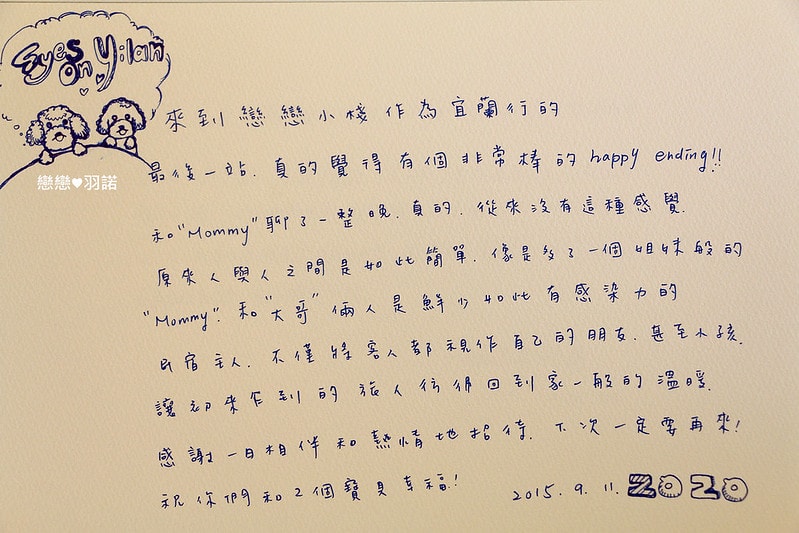 Eyes
on Yilan
戀戀♥羽諾
來到戀戀小棧作為宜蘭行的
最後一站. 真的覺得有個非常棒的 happy ending!!
和"Mommy"聊了一整晚. 真的. 從來沒有這種感覺.
原來人與人之間是如此簡單. 像是多了一個姐妹般的
"Mommy". 和"大哥"倆人是鮮少如此有感染力的
民宿主人. 不僅將客人都視作自己的朋友. 甚至小孩.
讓初來乍到的旅人彷彿回到家一般的溫暖.
感謝一日相伴和熱情地招待. 下次一定要再來!
祝你們和2個寶貝幸福!
2015. 9. 11. ZOZO